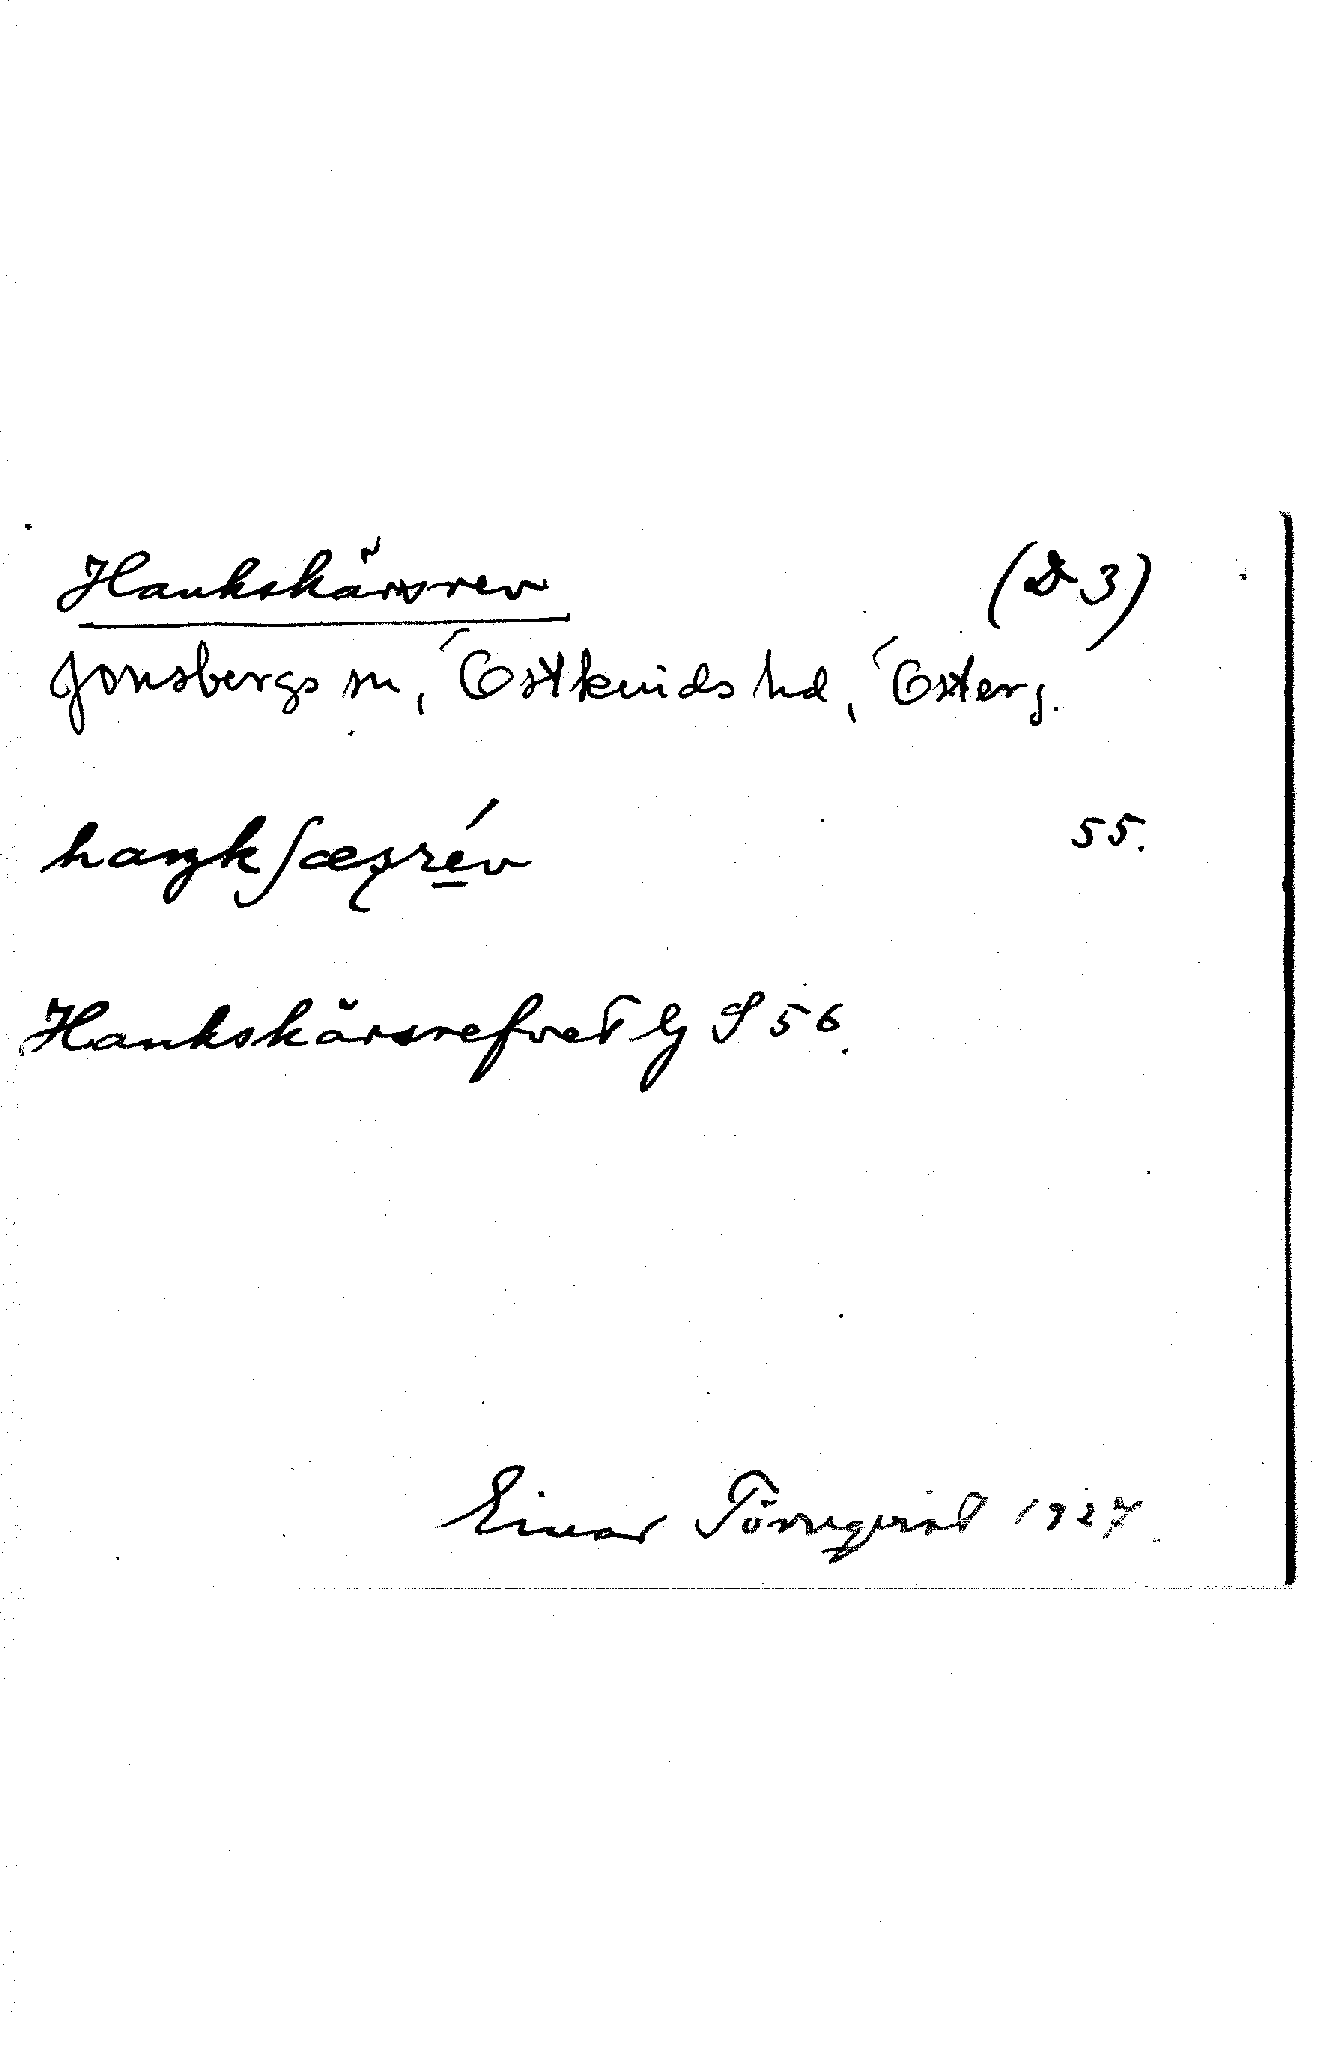 Hankskärsrev (D 3)
Jonsbergs sn, Östkinds hd, Österg.
55.
Hankskärsrefvet G S 56.
Einar Törnqvist 1927.